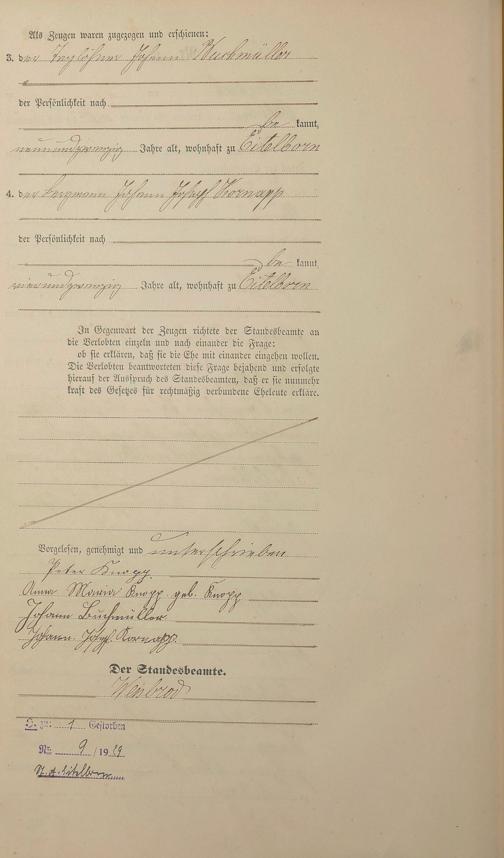 Als Zeugen waren zugezogen und erschienen:
3. der Taglöhner Johann Buchmüller
der Persönlichkeit nach
be kannt,
neunundzwanzig Jahre alt, wohnhaft zu Eitelborn
4. der Bergmann Johann Josef Kornapp
der Persönlichkeit nach
be kannt,
vierundzwanzig Jahre alt, wohnhaft zu Eitelborn
In Gegenwart der Zeugen richtete der Standesbeamte an
die Verlobten einzeln und nach einander die Frage:
ob sie erklären, daß sie die Ehe mit einander eingehen wollen.
Die Verlobten beantworteten diese Frage bejahend und erfolgte
hierauf der Ausspruch des Standesbeamten, daß er sie nunmehr
kraft des Gesetzes für rechtmäßig verbundene Eheleute erkläre.
Vorgelesen, genehmigt und unterschrieben
Peter Knopp
Anna Maria Knopp geb. Knopp
Johann Buchmüller
Johann Josef Kornapp
Der Standesbeamte.
zu 1 Gestorben
Nr. 9 / 19
St. A. Eitelborn